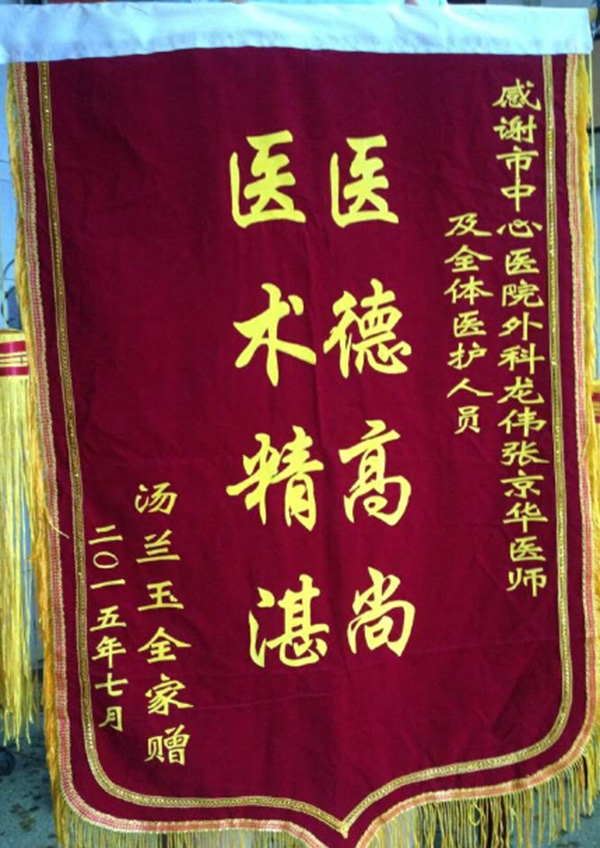 感谢市中心医院外科龙伟张京华医师
及全体医护人员
医德高尚
医术精湛
汤兰玉全家赠
二〇一五年七月